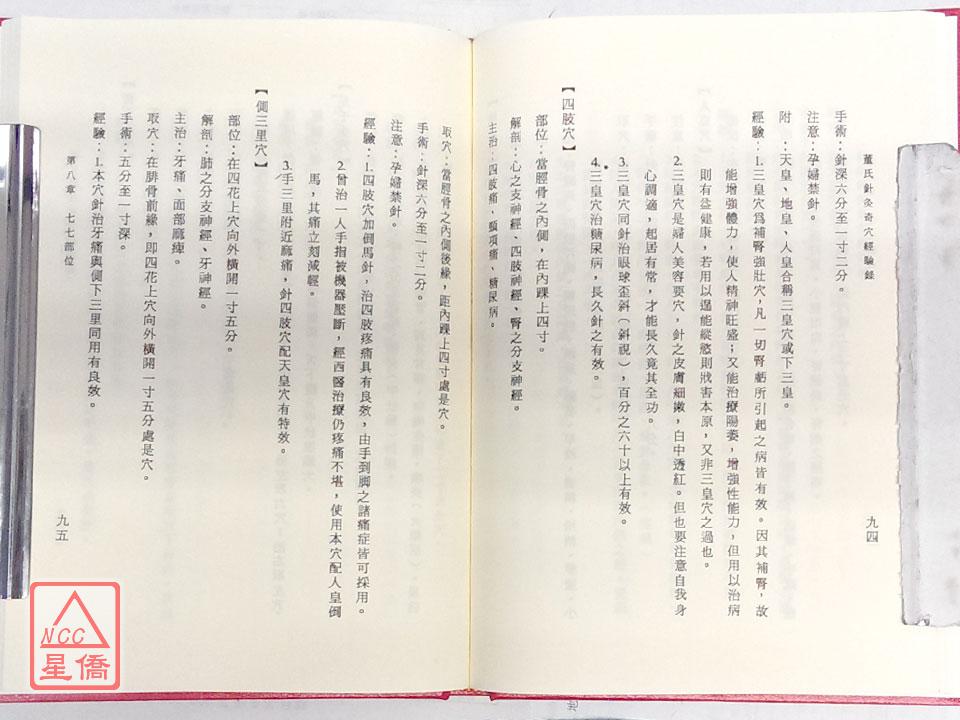 董氏針灸奇穴經驗錄
九四
手術：針深六分至一寸二分。
注意：孕婦禁針。
附：天皇、地皇、人皇合稱三皇穴或下三皇。
經驗：1.三皇穴爲補腎強壯穴，凡一切腎虧所引起之病皆有效。因其補腎，故
能增強體力，使人精神旺盛；又能治療陽萎，增強性能力，但用以治病
則有益健康，若用以逞能縱慾則戕害本原，又非三皇穴之過也。
2.三皇穴是婦人美容要穴，針之皮膚細嫩，白中透紅。但也要注意自我身
心調適，起居有常，才能長久竟其全功。
3.三皇穴同針治眼球歪斜（斜視），百分之六十以上有效。
4.三皇穴治糖尿病，長久針之有效。
【四肢穴】
部位：當脛骨之內側，在內踝上四寸。
解剖：心之支神經、四肢神經、腎之分支神經。
主治：四肢痛、頸項痛、糖尿病。
取穴：當脛骨之內側後緣，距內踝上四寸處是穴。
手術：針深六分至一寸二分。
注意：孕婦禁針。
經驗：1.四肢穴加倒馬針，治四肢疼痛具有良效，由手到脚之諸痛症皆可採用。
2.曾治一人手指被機器壓斷，經西醫治療仍疼痛不堪，使用本穴配人皇倒
馬，其痛立刻減輕。
3.手三里附近麻痛，針四肢穴配天皇穴有特效。
【側三里穴】
部位：在四花上穴向外橫開一寸五分。
解剖：肺之分支神經、牙神經。
主治：牙痛、面部麻痺。
取穴：在腓骨前緣，即四花上穴向外橫開一寸五分處是穴。
手術：五分至一寸深。
經驗：1.本穴針治牙痛與側下三里同用有良效。
第八章 七七部位
九五
NCC
星僑